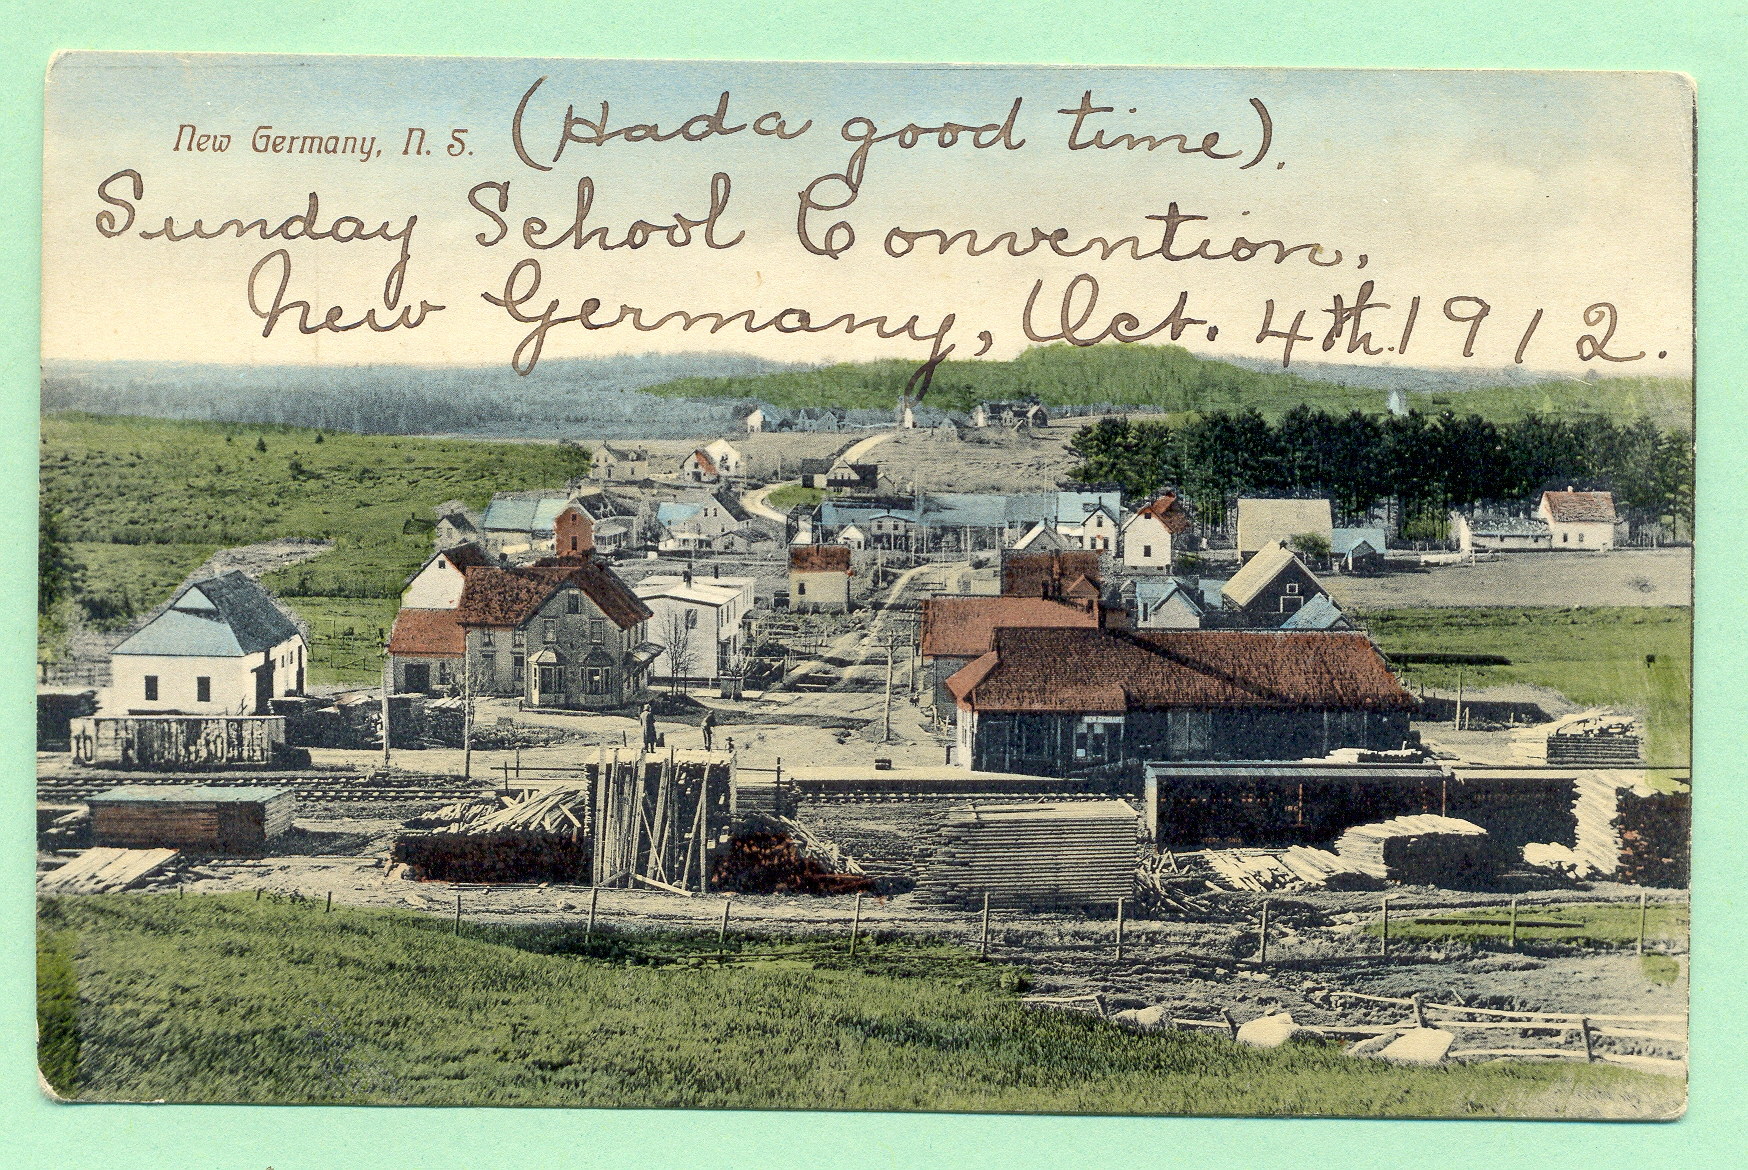 New Germany, N. S.
(Had a good time).
Sunday School Convention,
New Germany, Oct. 4th. 1912.
NEW GERMANY